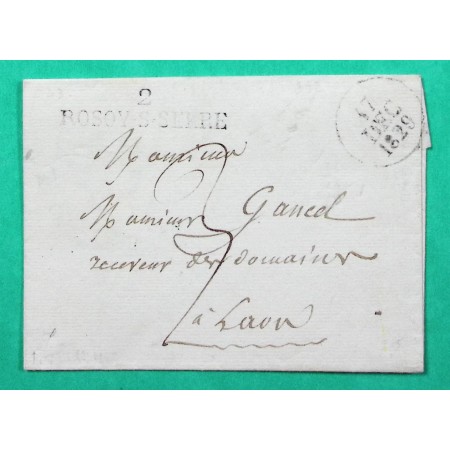 2
ROSOY-S-SERRE
17
DEC
1829
Monsieur
Monsieur Gancel
receveur des domaines
à Laon